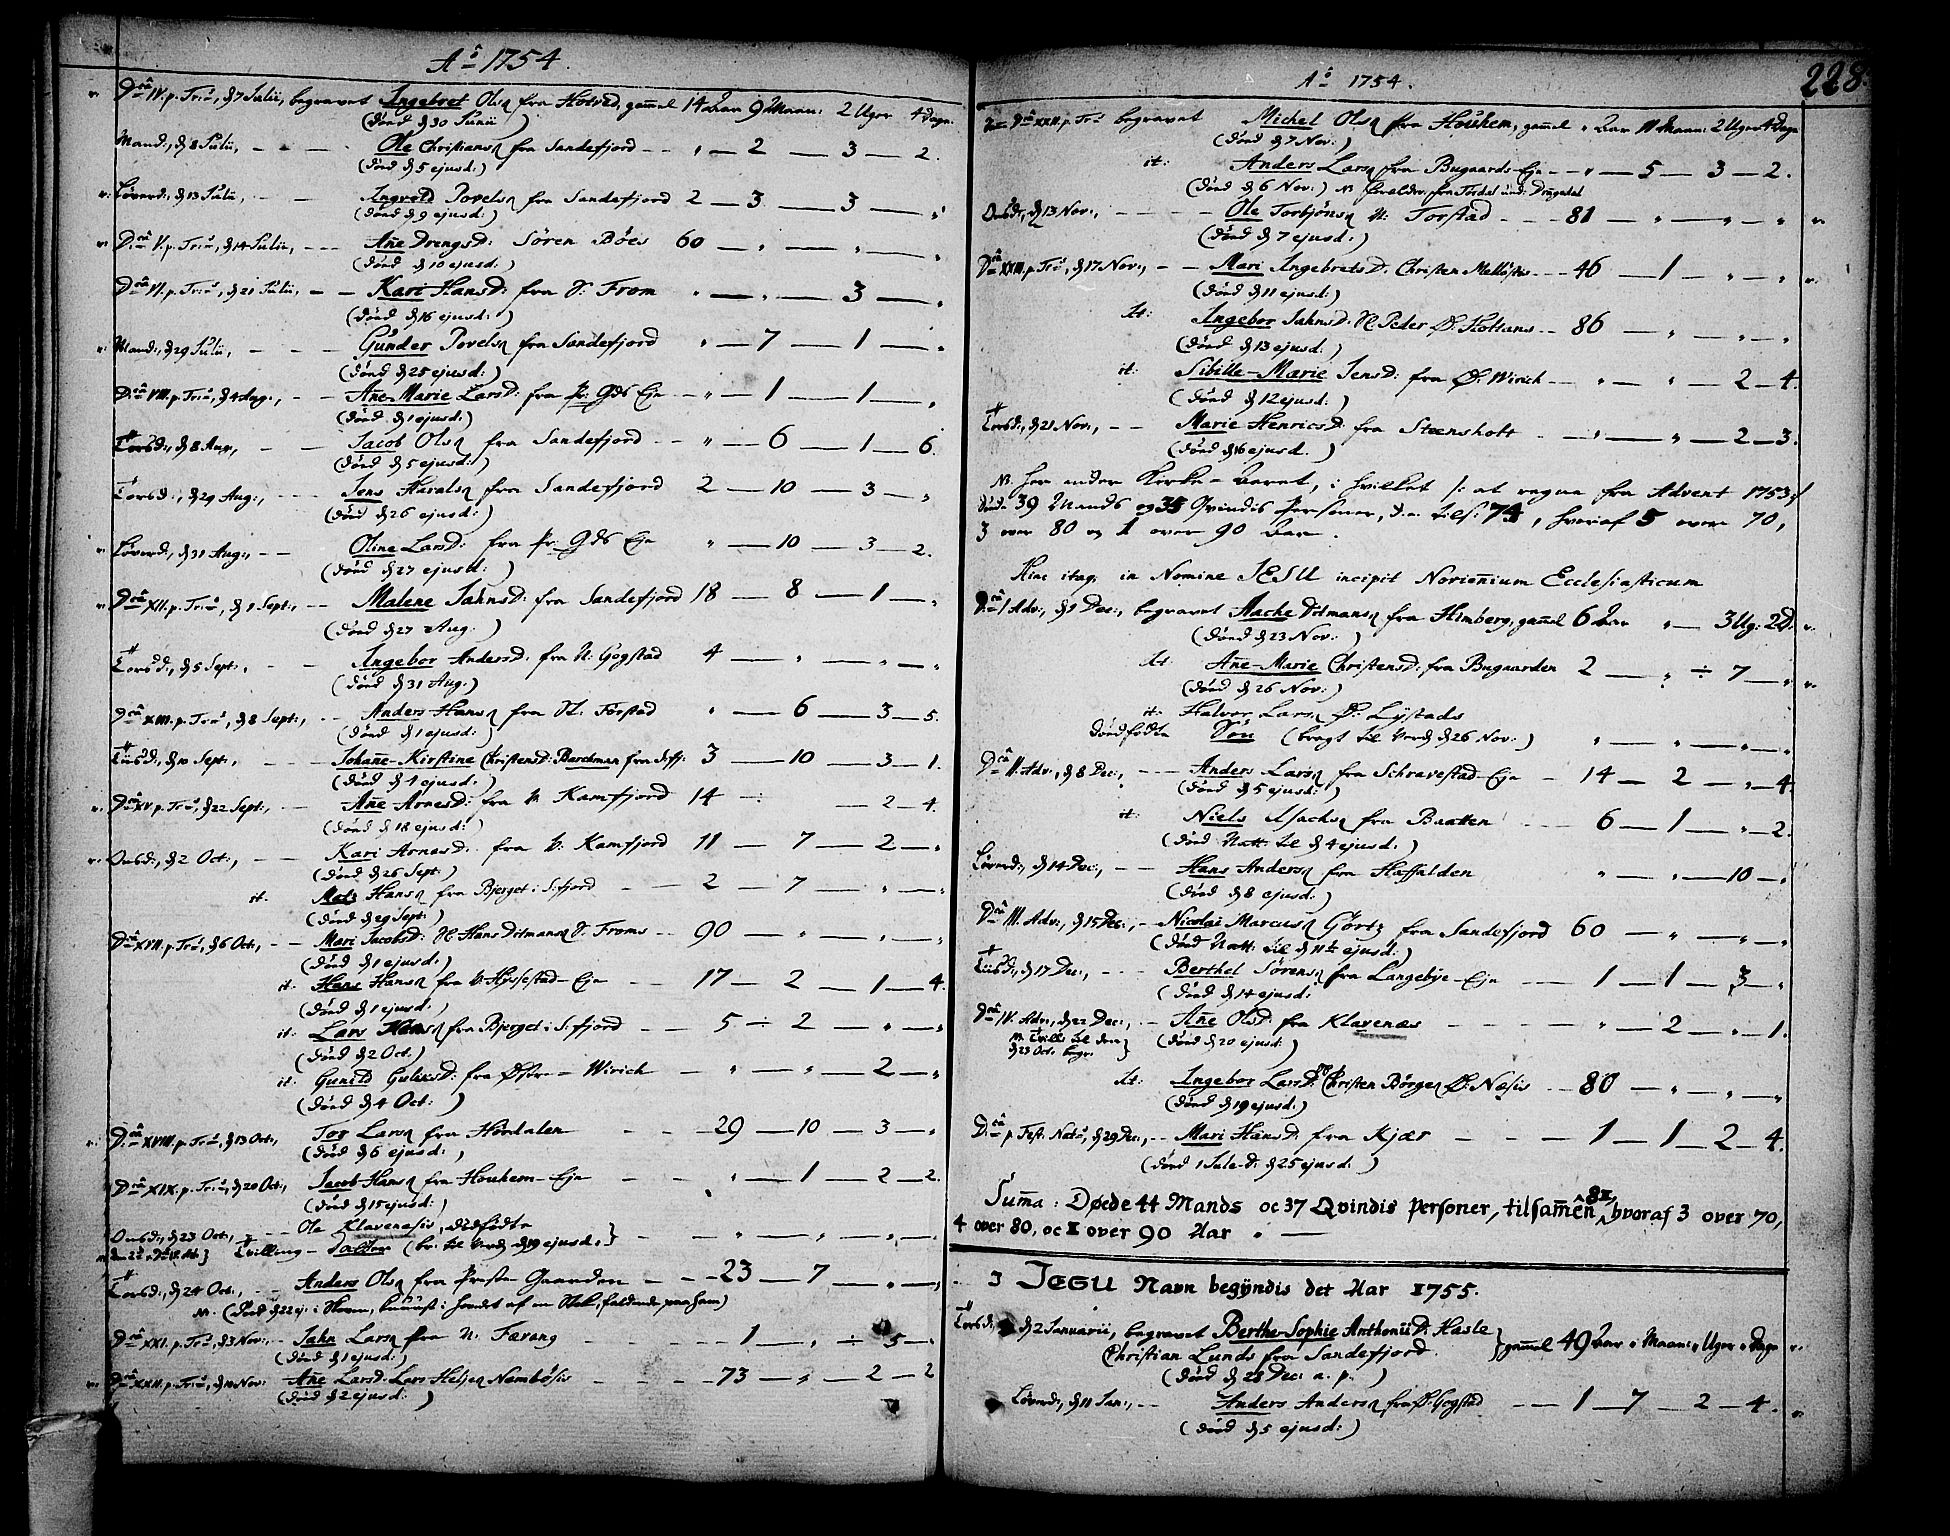 Aº 1754.
Dcâ IV. p. Tr:, d 7 Julii, begravet Ingebret Ols. fra Hotved, gammel 14 Aar 9 Maan: 2 Uger 4 Dage.
(Døed d 30 Junii)
Mand:, d 8 Julii, - - - Ole Christians. fra Sandefjord - - " 2 — 3 — 2.
(døed d 5 ejusd:)
Løverd:, d 13 Julii, - - Ingreld Povels. fra Sandefjord 2 — 3 — 3 — "
(døed d 9 ejusd:)
Dcâ V. p. Tr:, d 14 Julii, - - - Añe Drengsd: Søren Bøes 60 — " — " — "
(døed d 10 ejusd:)
Dcâ VI. p. Tr:, d 21 Julii, - - Kari Hansd: fra N: From " — " — 3 — "
(døed d 16 ejusd:)
Mand:, d 29 Julii, - - - Gunder Povels. fra Sandefjord " — 7 — 1 — "
(døed d 25 ejusd:)
Dcâ VIII. p. Tr:, d 4 Aug:, - - Añe-Marie Larsd: fra Pr: Gds Eje - " — 1 — 1 — "
(døed d 1 ejusd:)
Torsd:, d 8 Aug:, - - Jacob Ols. fra Sandefjord - - " — 6 — 1 — 6.
(døed d 5 ejusd:)
Torsd:, d 29 Aug:, - - - Jens Harals. fra Sandefjord 2 — 10 — 3 — "
(døed d 26 ejusd:)
Løverd:, d 31 Aug:, - - Oline Larsd: fra Pr: Gds Eje " — 10 — 3 — 2.
(døed d 27 ejusd:)
Dcâ XII. p. Tr:, d 1 Sept:, - - Malene Jahnsd: fra Sandefjord 18 — 8 — 1 — "
(døed d 27 Aug:)
Torsd:, d 5 Sept:, - - Ingebor Andersd: fra N: Gogstad 4 — " — " — "
(døed d 31 Aug:)
Dcâ XIII. p. Tr:, d 8 Sept:, - - Anders Hans. fra N: Forstad " — 6 — 3 — 5.
(døed d 1 ejusd:)
Tiisd:, d 10 Sept:, - - - Johañe-Kirstine Christensd: Barchman fra Seffj: 3 — 10 — 3 — 1.
(døed d 4 ejusd:)
Dcâ XV p. Tr:, d 22 Sept:, - - Añe Arnesd: fra N. Kamfjord 14 ÷ 2 — 4.
(døed d 18 ejusd:)
Onsd:, d 2 Oct:, - - - Kari Arnesd: fra N. Kamfjord 11 — 7 — 2 — "
(døed d 26 Sept:)
it: Mats Hans. fra Bjerget i S:fjord - - 2 — 7 — " — "
(døed d 29 Sept:)
Dcâ XVII. p. Tr:, d 6 Oct:, - - Mari Jacobsd: Hans Ditmans. N: Froms - - 90 — " — " — "
(døed d 1 ejusd:)
it: Hans Hans. fra V: Hyssestad-Eje - - 17 — 2 — 1 — 4.
(døed d 1 ejusd:)
it: Lars Hans. fra Bjerget i S:fjord - - 5 ÷ 2 — " — "
(døed d 2 Oct:)
it: Gunild Gulexsd: fra Østre-Wirich - " — " — 2 — "
(døed d 4 Oct:)
Dcâ XVIII. p. Tr:, d 13 Oct:, Tor Lars. fra Hordalen - - 29 — 10 — 3 — "
(døed d 6 ejusd:)
Dcâ XIX. p. Tr:, d 20 Oct:, Jacob Hans. fra Houkem-Eje - - " — 1 — 2 — 2.
(døed d 15 ejusd:)
Onsd:, d 23 Oct:, - - Ole Klavenæsis, dødfødte
Tvilling-Datter (br: til Verd d 19 ejusd:) - " — " — " — "
Torsd:, d 24 Oct:, - - Anders Ols. fra Præste-Gaarden - - 23 — 7 — " — "
N. (Død d 22 ej: i Skoven, knuust i hovdet af en Stok, faldende paa ham)
Dcâ XXI. p. Tr:, d 3 Nov:, - Jahn Lars. fra N: Færang - - 1 — " ÷ 5 — "
(døed d 1 ejusd:)
Dcâ XXII. p. Tr:, d 10 Nov: Añe Larsd: Lars Heljes Nambösis - - - 73 — " — 2 — 2
(døed d 2 ejusd:)
228.
Aº 1754.
Dcâ XXII. p. Tr: begravet Michel Ols. fra Houkem, gammel " Aar 11 Maan: 2 Uger 4 Dage
(døed d 7 Nov:)
it: Anders Lars. fra Bugaards-Eje - " — 5 — 3 — 2.
(døed d 6 Nov:) N. Foraldre, fra Tordal und: Drangedal
Onsd:, d 13 Nov:, - - - Ole Torbjøns. N: Torstad - - 81 — " — " — "
(døed d 7 ejusd:)
Dcâ XXIII. p. Tr:, d 17 Nov:, - - Mari Ingebretsd. Christen Melløses - - 46 — 1 — " — "
(døed d 11 ejusd:)
it: Ingebor Jahnsd. Peder Ø. Kottans - - 86 — " — " — "
(døed d 13 ejusd:)
it: Sibille-Marie Jensd: fra Ø. Wirich - - " — " — 2 — 4.
(døed d 12 ejusd:)
Torsd:, d 21 Nov:, - - Marie Henricsd. fra Steensholt - " — " — 2 — 3.
(døed d 16 ejusd.)
N. Her ender Kirke-Aaret, i hvilket /: at regne fra Advent 1753 :/
Døde 39 Mands og 35 Qvindis Personer, d. e. tils: 74, hvoraf 5 over 70,
3 over 80 og 1 over 90 Aar.
Hinc itaq; in Nomine JESU incipit Novennium Ecclesiasticum
Dcâ I Adv:, d 1 Dec:, begravet Mache Ditmans. fra Himberg, gammel 6 Aar " — 3 Ug: 2 D.
(døed d 23 Nov:)
it: Añe-Marie Christensd: fra Bugaarden 2 — " ÷ 7 — "
(døed d 26 Nov:)
it: Halvor Lars. Ø: Lystads
dødfødte Søn (bragt til Verd d 26 Nov:) " — " — " — "
Dcâ II. Adv:, d 8 Dec:, - - Anders Lars. fra Schravestad-Eje - 14 — 2 — " — 4
(døed d 5 ejusd:)
it: Niels Isachs. fra Baatten - - 6 — 1 — " — 2.
(døed Natt. til d 4 ejusd:)
Løverd:, d 14 Dec:, - - Hans Anders. fra Haffalden " — " — 10 — "
(døed d 8 ejusd:)
Dcâ III. Adv:, d 15 Dec:, - Nicolai Marcus. Görtz fra Sandefjord 60 — " — " — "
(døed Natt. til d 11te ejusd:)
Tiisd:, d 17 Dec:, - - - Berthel Sørens. fra Langebye-Eje - 1 — 1 — 3 — "
(døed d 14 ejusd:
Dcâ IV. Adv:, d 22 Dec:, - - Añe Olsd: fra Klavenæs - - - - " — 2 — " — 1.
N. Tvilli: til den d 23 Oct: begr: } (døed d 20 ejusd:)
it: Ingebor Larsd: Christen Børges Ø. Næsis - - 80 — " — " — "
(døed d 19 ejusd:)
Dcâ p. Fest. Nat:, d 29 Dec:, - - Mari Hansd: fra Kjær - - - 1 — 1 — 2 — 4.
(døed 1 Jule-D: d 25 ejusd:)
Suma: Døede 44 Mands oc 37 Qvindis Personer, tilsamen 81, hvoraf 3 over 70,
4 over 80, oc 1 over 90 Aar
I JESU Navn begyndis det Aar 1755.
Torsd:, d 2 Januarii, begravet Berthe-Sophie Anthonii D. Hasle } gammel 49 Aar " Maan: " Uger " Dage
Christian Lunds fra Sandefjord
(døed d 28 Dec: a. p.)
Løverd:, d 11 Jan:, - - Anders Anders. fra Ø. Gogstad - - 1 — 7 — 2 — 4.
(døed d 5 ejusd:)